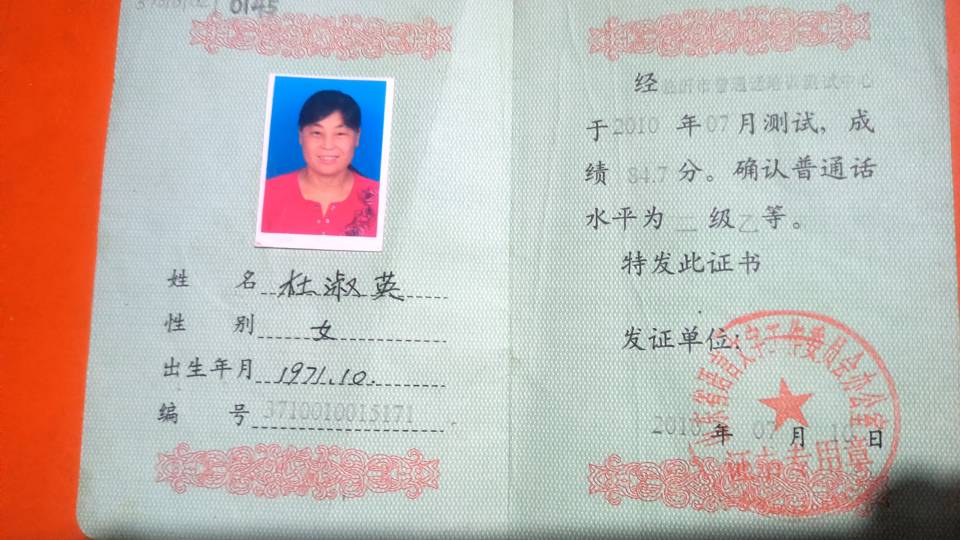 0145
姓 名 杜淑英
性 别 女
出生年月 1971.10.
编 号 3710010015171
经临沂市普通话培训测试中心
于2010年07月测试，成
绩 84.7 分。确认普通话
水平为 二 级乙等。
特发此证书
发证单位：
山东省语言文字工作委员会办公室
证书专用章
2010 年 07 月 日